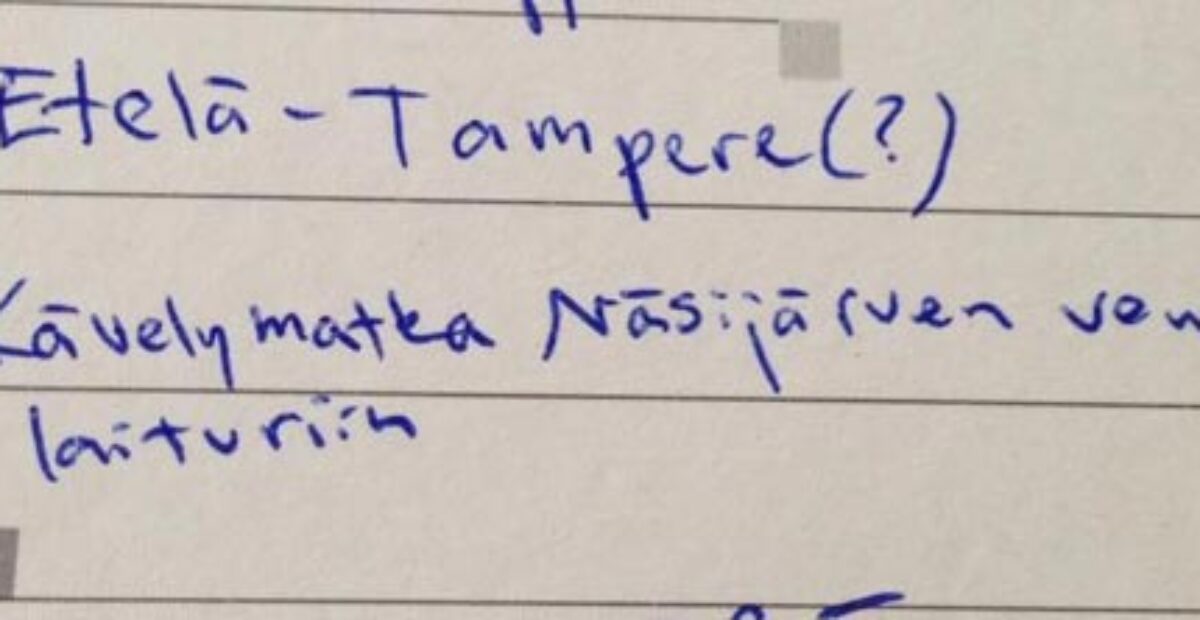 Etelä-Tampere(?)
Kävelymatka Näsijärven
laituriin